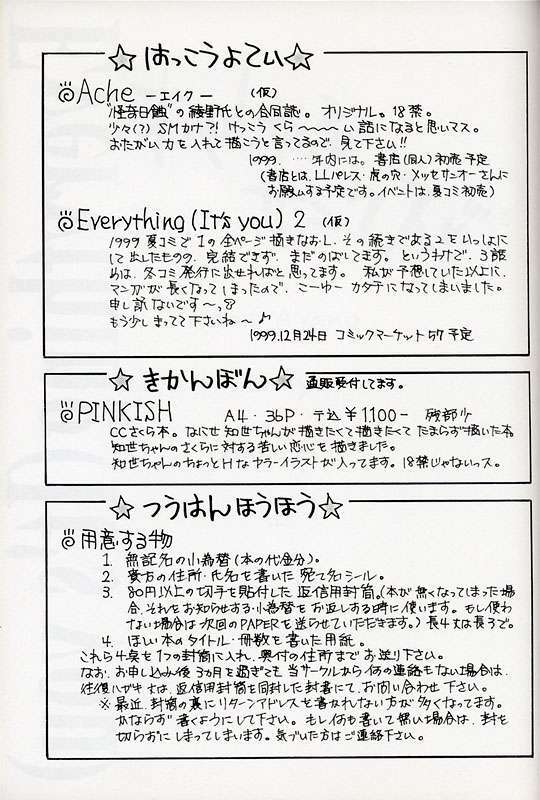 ☆はっこうよてい☆
Ache －エイク－ (仮)
"怪奇日蝕"の綾野氏との合同誌。オリジナル。18禁。
少々(?)SMカナ?! けっこうくら〜〜〜〜い話になると思いマス。
おたがい力を入れて描こうと言ってるので、見て下さい!!
1999. ‥‥年内には。書店(同人)初売予定
(書店とは、LLパレス・虎の穴・メッセサンオーさんに
お願いする予定です。イベントは、夏コミ初売)
Everything (It's you) 2 (仮)
1999夏コミで1の全ページ描きなおし、その続きである2をいっしょに
して出したものの、完結できず、まだのばしてます。というわけで、3話
めは、冬コミ発行に出せればと思ってます。 私が予想していた以上に、
マンガが長くなってしまったので、こーゆーカタチになってしまいました。
申し訳ないです〜っ
もう少しまってて下さいね〜♪
1999.12月24日 コミックマーケット57予定
☆きかんぼん☆ 通販受付してます。
PINKISH A4・36P・〒込¥1100- 残部少
CCさくら本。なにせ知世ちゃんが描きたくて描きたくてたまらず描いた本。
知世ちゃんのさくらに対する苦しい恋心を描きました。
知世ちゃんのちょっとHなカラーイラストが入ってます。18禁じゃないっス。
☆つうはんほうほう☆
用意する物
1. 無記名の小為替(本の代金分)。
2. 貴方の住所・氏名を書いた宛て名シール。
3. 80円以上の切手を貼付した返信用封筒。(本が無くなってしまった場
合、それをお知らせする・小為替をお返しする時に使います。もし使わ
ない場合は次回のPAPERを送らせていただきます。)長4又は長3で。
4. ほしい本のタイトル・冊数を書いた用紙。
これら4点を1つの封筒に入れ、奥付の住所までお送り下さい。
なお、お申し込み後3ヵ月を過ぎても当サークルから何の連絡もない場合は、
往復ハガキ又は、返信用封筒を同封した封書にて、お問い合わせ下さい。
※最近、封筒の裏にリターンアドレスを書かれない方が多くなってます。
かならず書くようにして下さい。もし何も書いて無い場合は、封を
切らずにしまってしまいます。気づいた方はご連絡下さい。